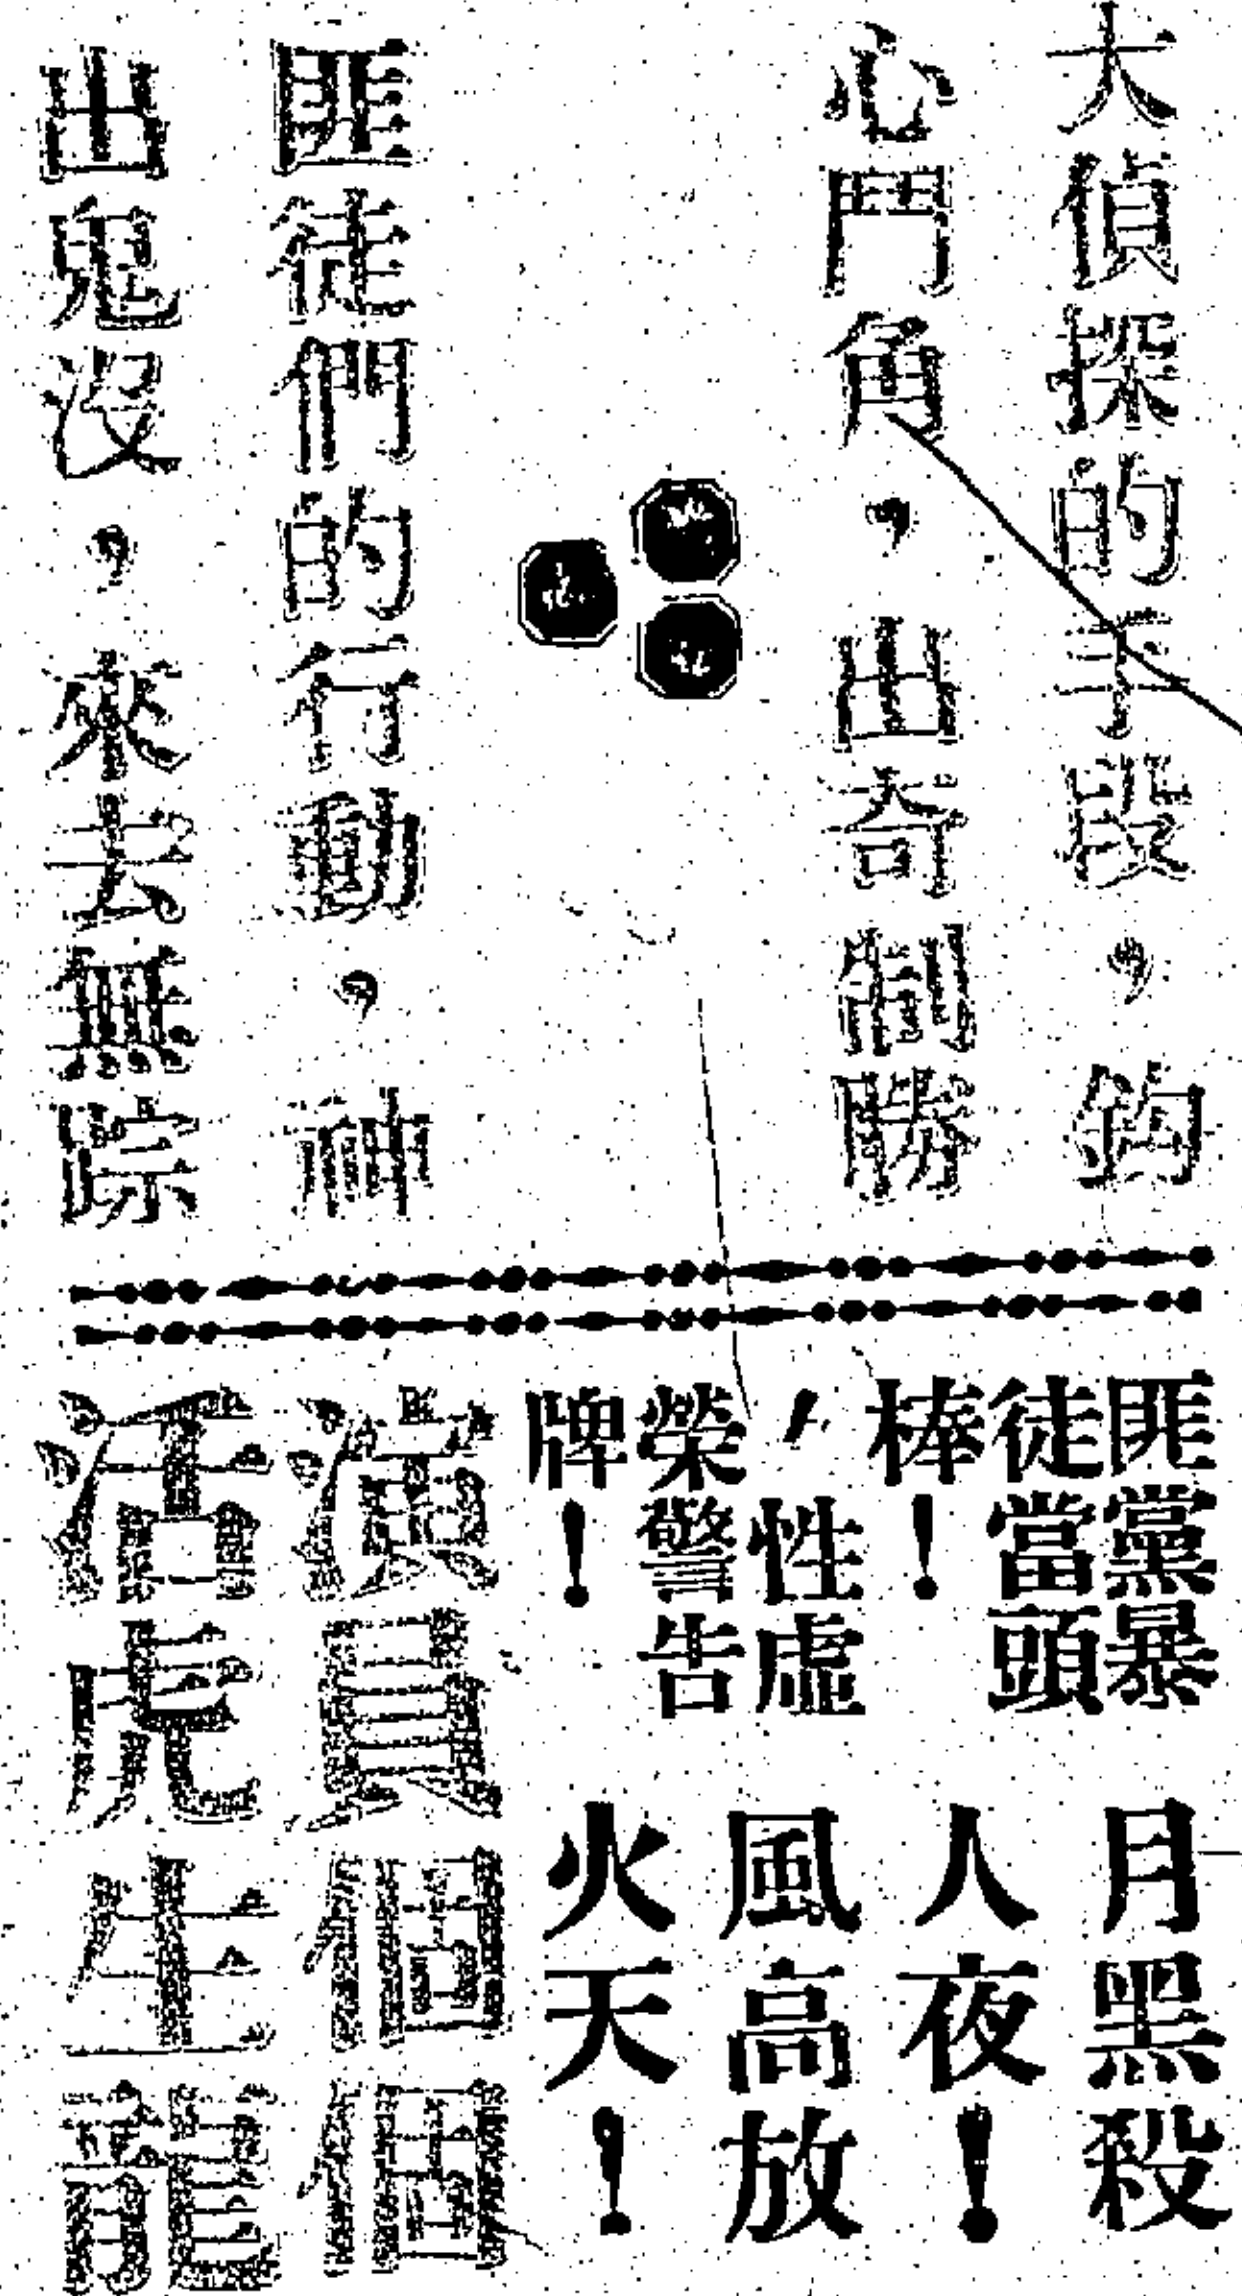 大偵探的手段，鈎
心鬥角，出奇制勝
匪徒們的行動，神
出鬼沒，來去無踪
匪黨暴
徒當頭
棒！
，性虛
榮警告
牌！
月黑殺
人夜！
風高放
火天！
演員個個
活虎生龍